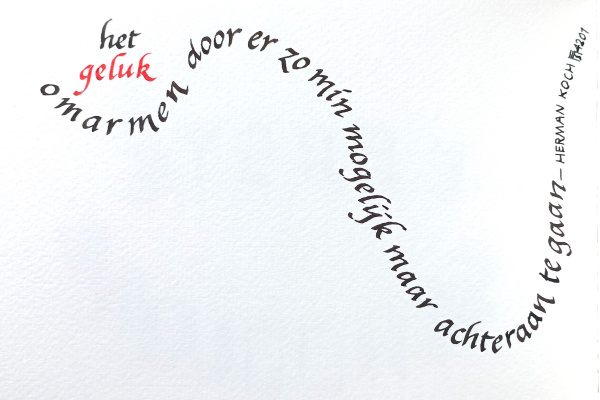 het
geluk
omarmen door er zo min mogelijk maar achteraan te gaan — HERMAN KOCH